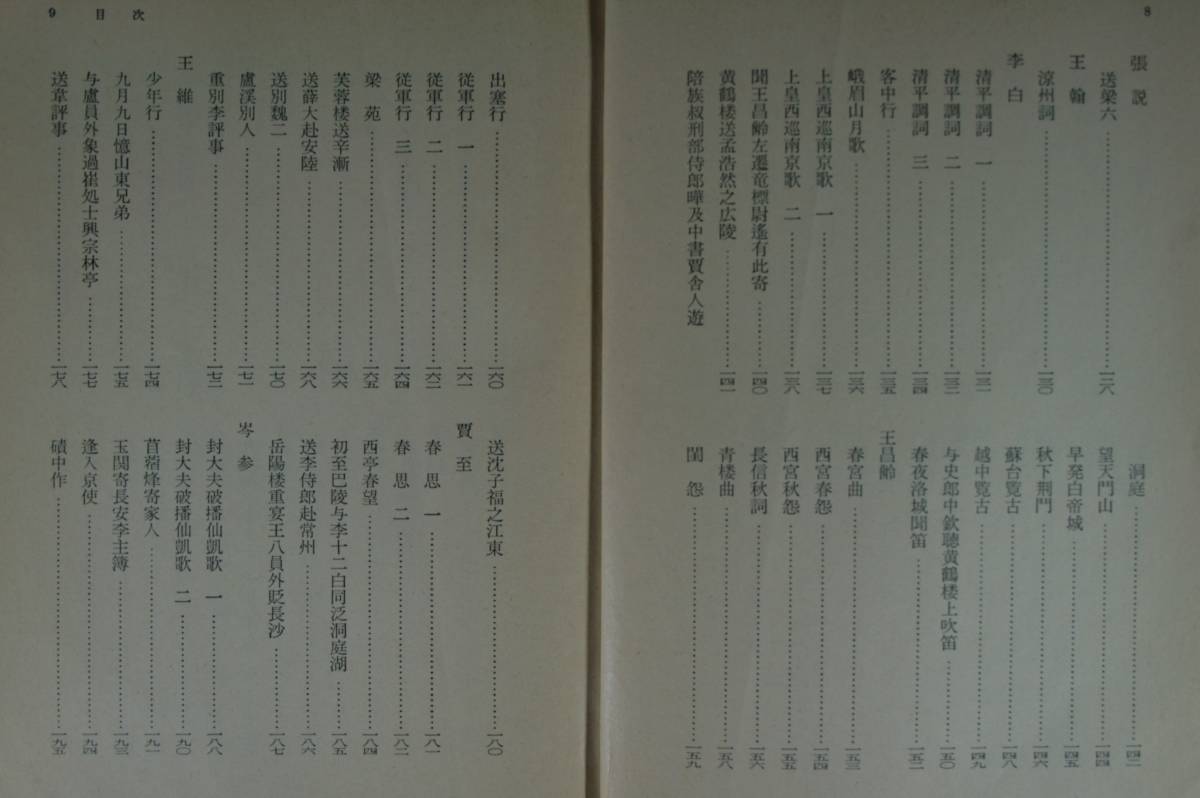 8
張説
送梁六……一二八
王翰
涼州詞……一三〇
李白
清平調詞 一……一三一
清平調詞 二……一三二
清平調詞 三……一三四
客中行……一三五
峨眉山月歌……一三六
上皇西巡南京歌 一……一三七
上皇西巡南京歌 二……一三八
聞王昌齢左遷竜標尉遙有此寄……一四〇
黄鶴楼送孟浩然之広陵……一四一
陪族叔刑部侍郎曄及中書賈舎人遊
洞庭……一四二
望天門山……一四四
早発白帝城……一四五
秋下荆門……一四六
蘇台覧古……一四八
越中覧古……一四九
与史郎中欽聴黄鶴楼上吹笛……一五〇
春夜洛城聞笛……一五二
王昌齢
春宮曲……一五三
西宮春怨……一五四
西宮秋怨……一五五
長信秋詞……一五六
青楼曲……一五八
閨怨……一五九
9 目次
出塞行……一六〇
従軍行 一……一六一
従軍行 二……一六二
従軍行 三……一六四
梁苑……一六五
芙蓉楼送辛漸……一六六
送薛大赴安陸……一六八
送別魏二……一七〇
盧渓別人……一七一
重別李評事……一七二
王維
少年行……一七四
九月九日憶山東兄弟……一七五
与盧員外象過崔処士興宗林亭……一七七
送韋評事……一七八
送沈子福之江東……一八〇
賈至
春思 一……一八一
春思 二……一八二
西亭春望……一八四
初至巴陵与李十二白同泛洞庭湖……一八五
送李侍郎赴常州……一八六
岳陽楼重宴王八員外貶長沙……一八七
岑参
封大夫破播仙凱歌 一……一八八
封大夫破播仙凱歌 二……一九〇
苜蓿烽寄家人……一九一
玉関寄長安李主簿……一九三
逢入京使……一九四
磧中作……一九五